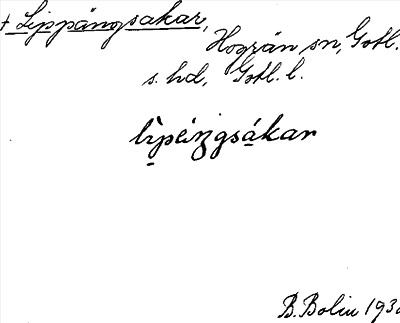 † Lippängsakar,
Hogrän sn, Gotl.
s. hd, Gotl. l.
lìpéŋgsákar
B. Bolin 193